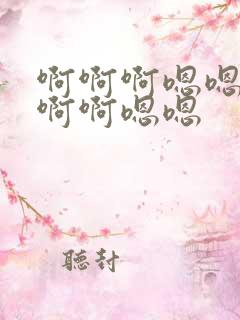 啊啊啊嗯嗯
啊啊嗯嗯
聽封